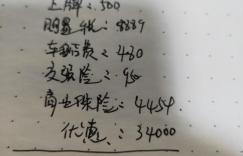 上牌:500
购置税:8889
车船费:430
交强险:950
商业保险:4454
优惠:34000